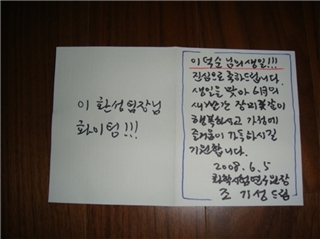 이 환성팀장님
화이팅!!!
이덕순님의 생일!!!
진심으로 축하드립니다.
생일을 맞아 6月의
새빨간 장미꽃같이
행복하시고 가정에
즐거움이 가득하시길
기원합니다.
2008. 6. 5
화학시험연수원장
조기성드림